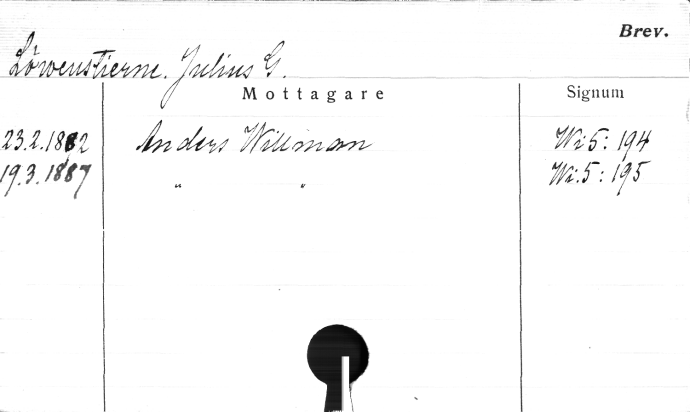 Brev.
Löwenstierne, Julius G.
Mottagare Signum
23.2.1882 Anders Willman Wi:5:194
19.3.1887 " " Wi:5:195